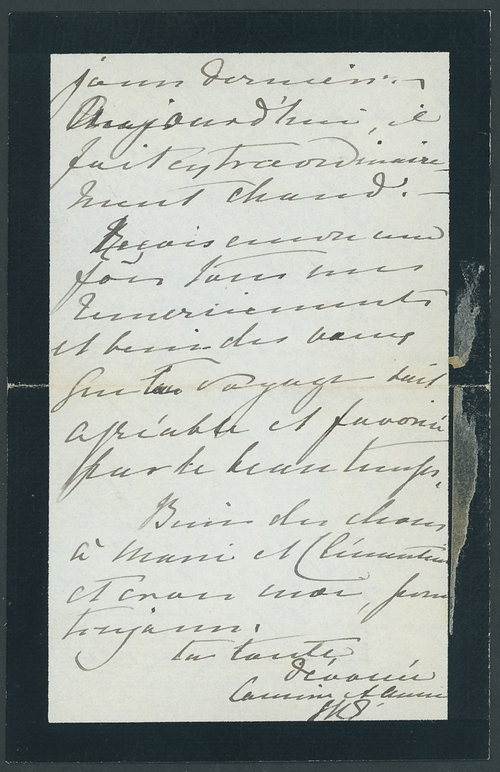 jours derniers. —
Aujourd'hui, il
fait extraordinaire-
ment chaud. —
Reçois encore une
fois tous mes
remerciements
et bien des vœux
que ton voyage soit
agréable et favorisé
par le beau temps.
Bien des choses
à Marie et Clémentine
et crois moi, pour
toujours.
ta toute
dévouée
Cousine et Amie